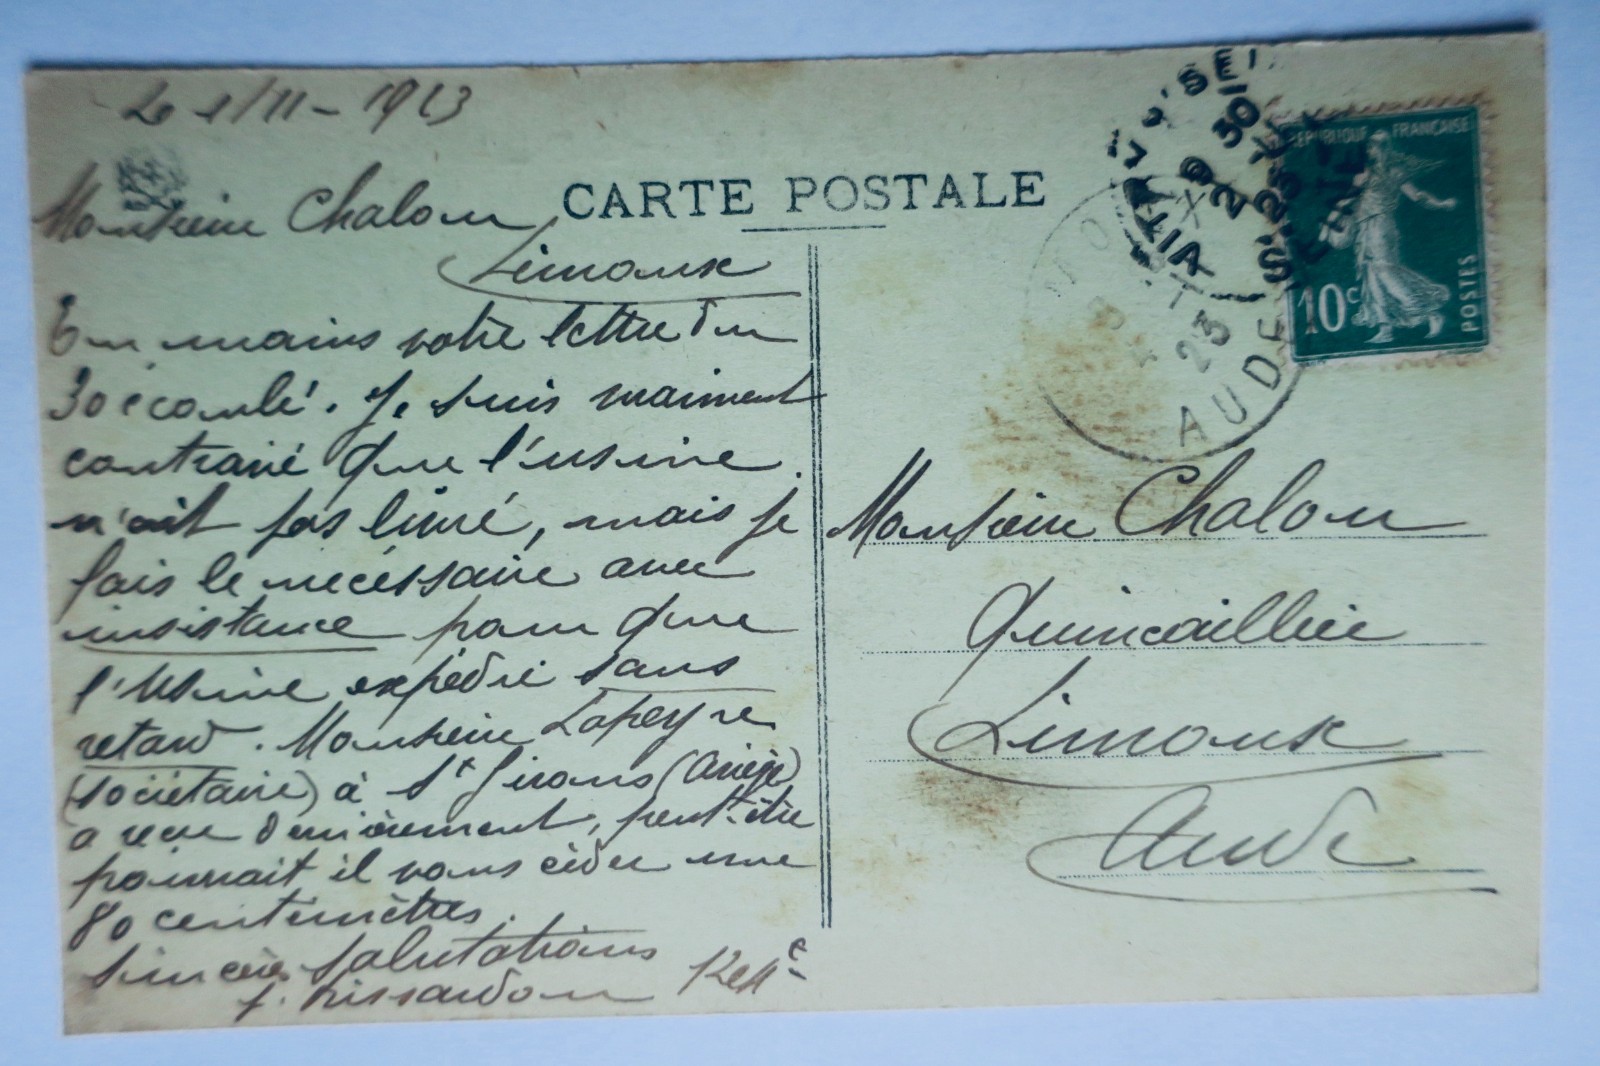 1/11 - 1923
Monsieur Chalou
Limoux
En mains votre lettre du
30 écoulé. Je suis vraiment
contrarié que l'usine
n'ait pas livré, mais je
fais le nécessaire avec
insistance pour que
l'usine expédie sans
retard. Monsieur Lapeyre
(sociétaire) à St Girons (Ariège)
a reçu dernièrement, peut-être
pourrait il vous céder une
80 centimètres.
Sincères salutations
CARTE POSTALE
9 30
AUDE
23
REPUBLIQUE FRANÇAISE
10c
POSTES
Monsieur Chalou
Quincaillier
Limoux
Aude